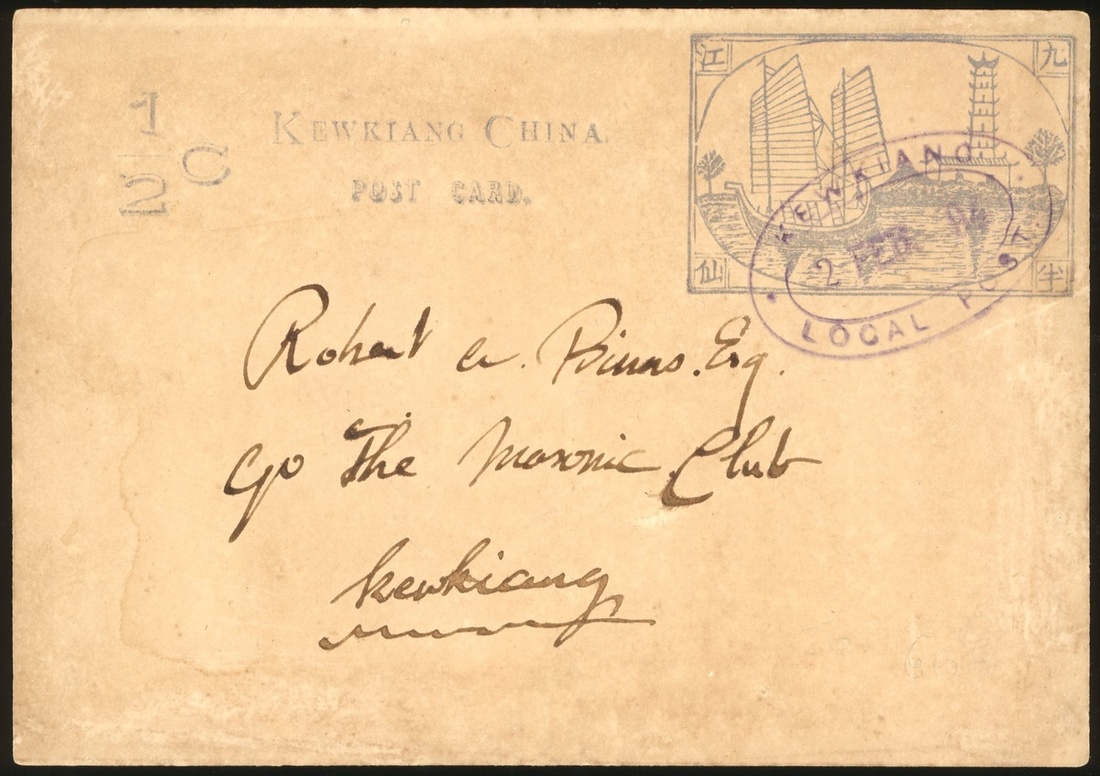 1/2 C
KEWKIANG CHINA.
POST CARD.
江 九
仙 半
KEWKIANG
2 FEB. 94
LOCAL POST.
Robert A. Binns. Esq.
c/o The Masonic Club
Kewkiang